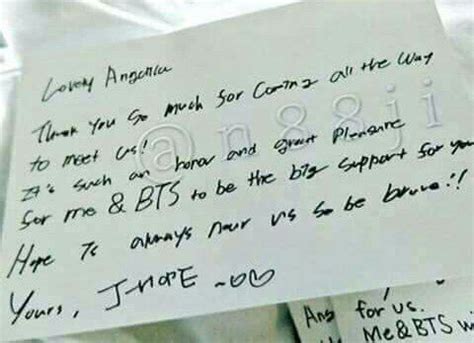 Lovely Angelica
Thank you so much for coming all the way
to meet us!
It's such an honor and great pleasure
for me & BTS to be the big support for you
Hope is always near us so be brave!!
Yours, J-HOPE ~♡♡
@n88ji
Ang for us.
Me & BTS wi